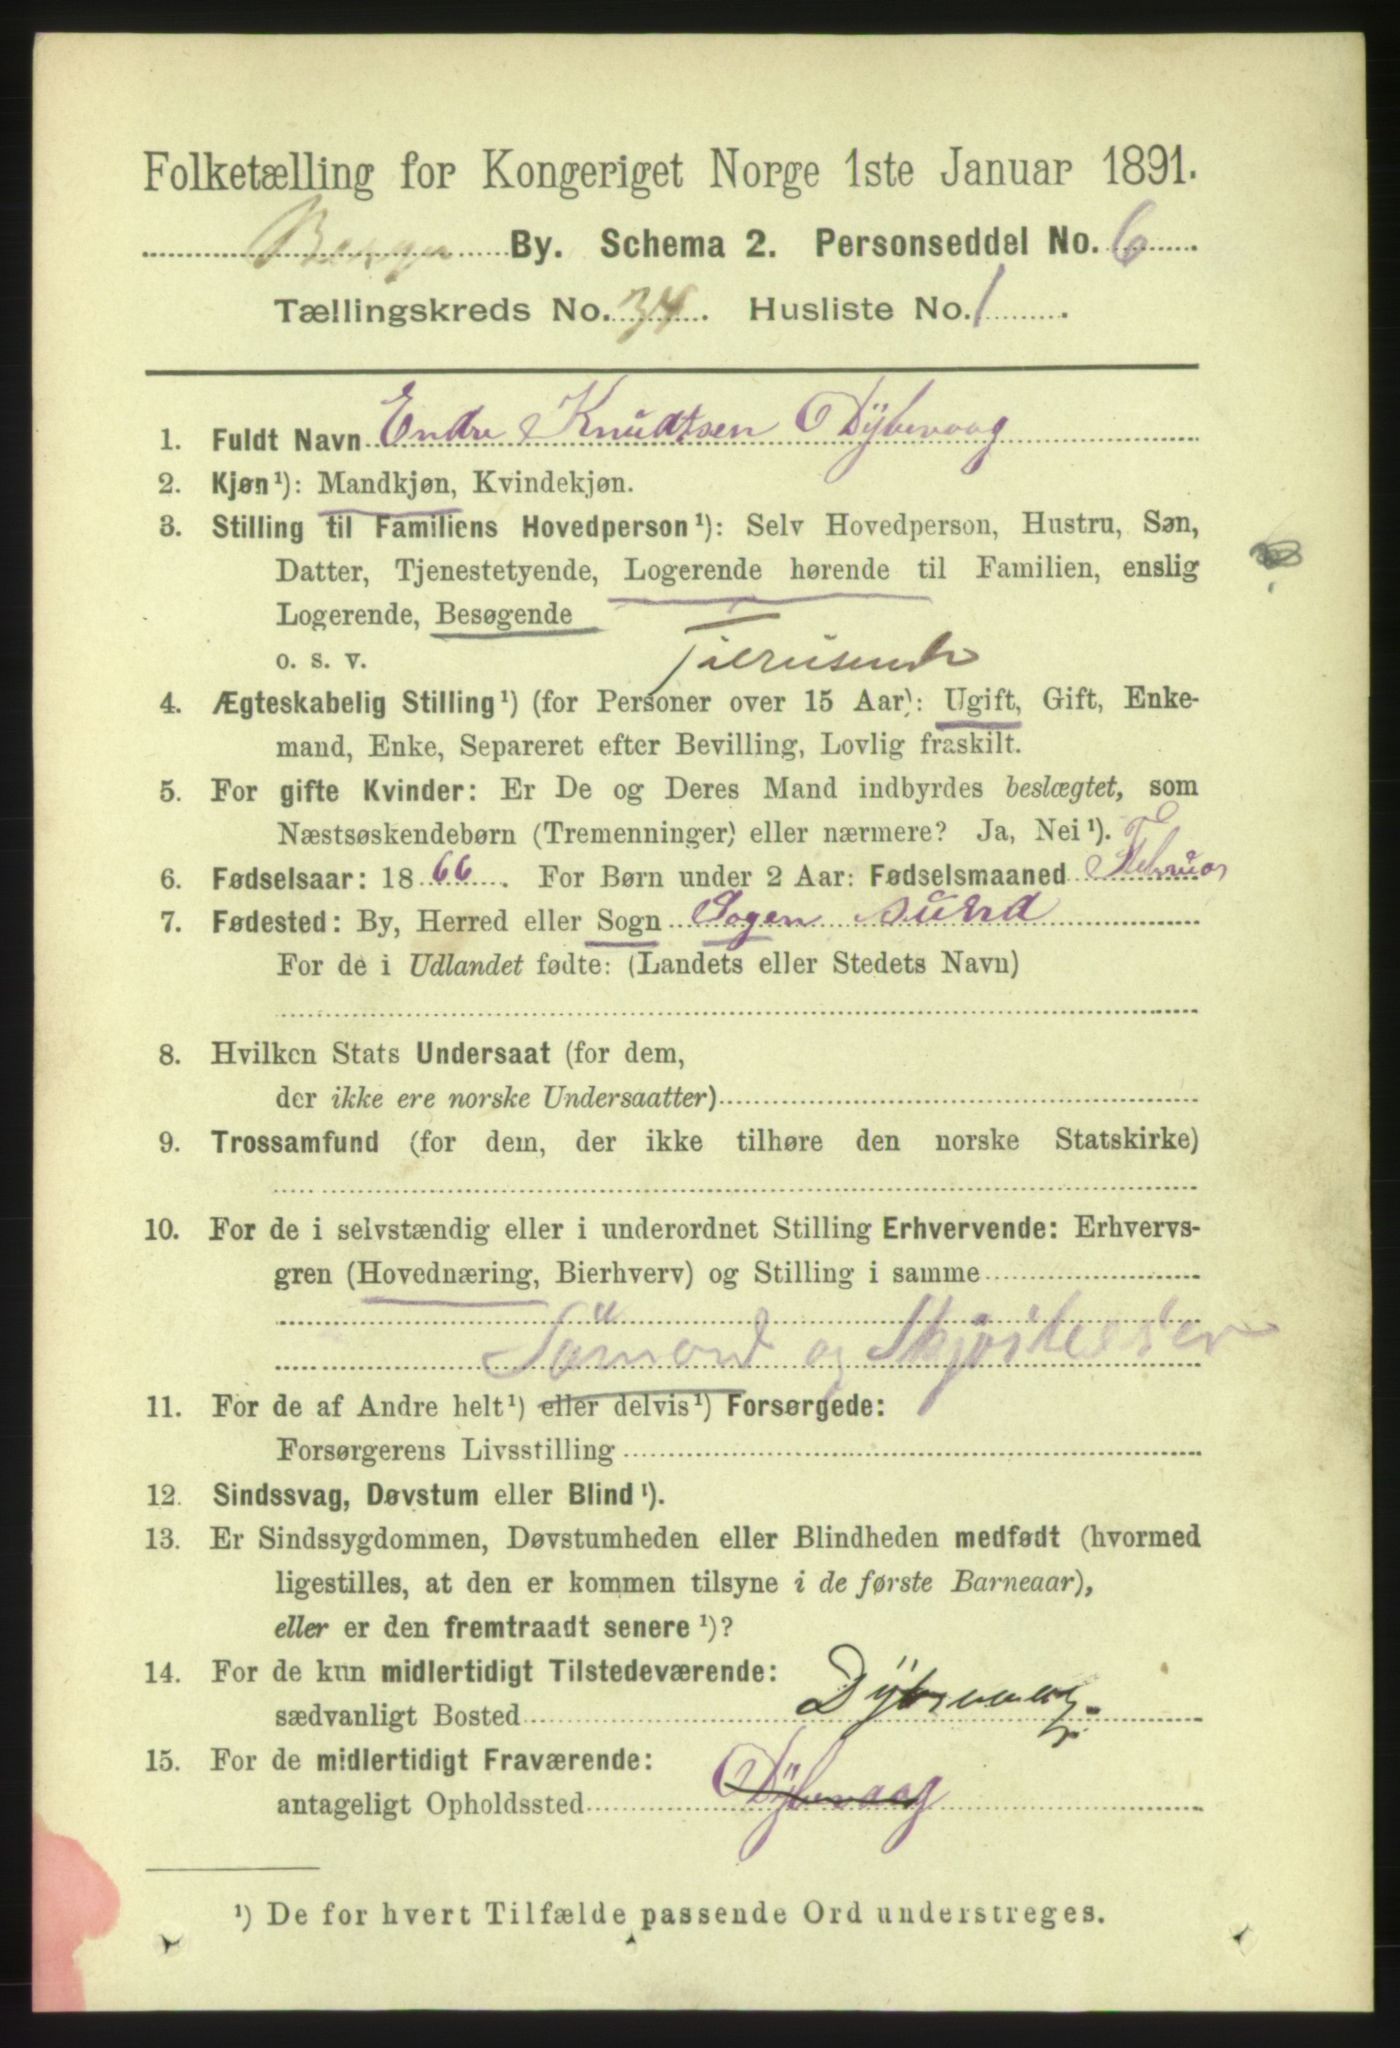 Folketælling for Kongeriget Norge 1ste Januar 1891.
Bergen By. Schema 2. Personseddel No. 6
Tællingskreds No. 34. Husliste No. 1.
1. Fuldt Navn Endre Knudtsen Dÿbevaag
2. Kjøn ¹): Mandkjøn, Kvindekjøn.
3. Stilling til Familiens Hovedperson ¹): Selv Hovedperson, Hustru, Søn,
Datter, Tjenestetyende, Logerende hørende til Familien, enslig
Logerende, Besøgende
o. s. v.
4. Ægteskabelig Stilling ¹) (for Personer over 15 Aar): Ugift, Gift, Enke-
mand, Enke, Separeret efter Bevilling, Lovlig fraskilt.
5. For gifte Kvinder: Er De og Deres Mand indbyrdes beslægtet, som
Næstsøskendebørn (Tremenninger) eller nærmere? Ja, Nei ¹).
6. Fødselsaar: 1866. For Børn under 2 Aar: Fødselsmaaned Februar
7. Fødested: By, Herred eller Sogn Sogen Sund
For de i Udlandet fødte: (Landets eller Stedets Navn)
8. Hvilken Stats Undersaat (for dem,
der ikke ere norske Undersaatter)
9. Trossamfund (for dem, der ikke tilhøre den norske Statskirke)
10. For de i selvstændig eller i underordnet Stilling Erhvervende: Erhvervs-
gren (Hovednæring, Bierhverv) og Stilling i samme
og
11. For de af Andre helt ¹) eller delvis ¹) Forsørgede:
Forsørgerens Livsstilling
12. Sindssvag, Døvstum eller Blind ¹).
13. Er Sindssygdommen, Døvstumheden eller Blindheden medfødt (hvormed
ligestilles, at den er kommen tilsyne i de første Barneaar),
eller er den fremtraadt senere ¹)?
14. For de kun midlertidigt Tilstedeværende:
sædvanligt Bosted Dÿbevaag
15. For de midlertidigt Fraværende:
antageligt Opholdssted Dÿbevaag
¹) De for hvert Tilfælde passende Ord understreges.